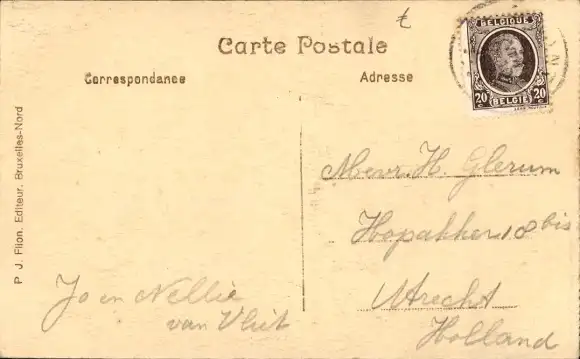 €
Carte Postale
Correspondance
Adresse
BELGIQUE
20 20
BELGIË
P. J. Flion, Editeur, Bruxelles-Nord
Mevr. H. Glerum
Hopakker 18 bis
Utrecht
Holland
Jo en Nellie
van Vliet